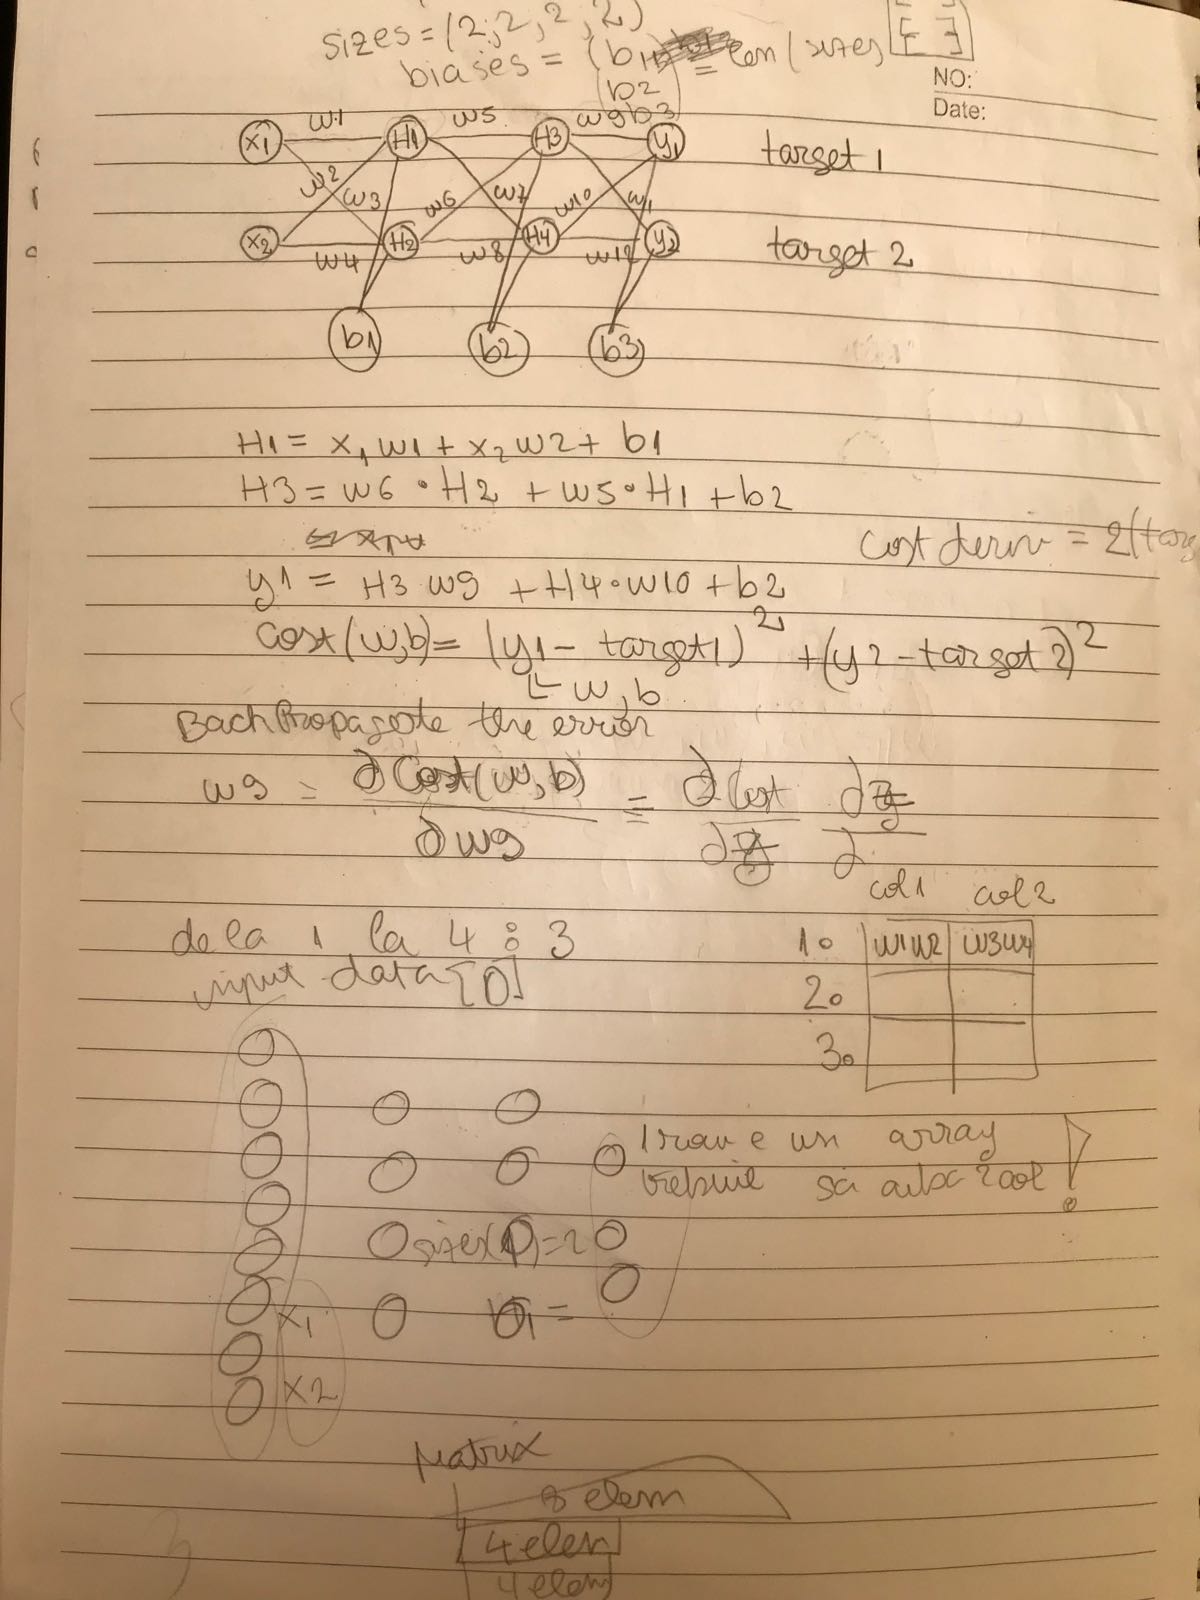 sizes = (2, 2, 2, 2)
[ ]
biases = (b1, = len(sizes)
b2
b3)
NO:
Date:
x1 w1 H1 w5 H3 w9 y1 target 1
w2 w3 w6 w7 w10 w11
x2 w4 H2 w8 H4 w12 y2 target 2
b1 b2 b3
H1 = x1 w1 + x2 w2 + b1
H3 = w6 • H2 + w5 • H1 + b2
cost deriv = 2(targ
y1 = H3 w9 + H4 • w10 + b2
Cost(w,b) = (y1 - target1)² + (y2 - target 2)²
w, b
BackPropagate the error
w9 = ∂Cost(w,b) / ∂w9 = ∂Cost / ∂y ∂y / ∂
col1 col2
de la 1 la 4 : 3
1. w1w2 w3w4
input data[0]
2.
3.
1 row e un array
trebuie sa aiba 2 col !
sizes(1) = 2
x1 b1 =
x2
Matrix
8 elem
4 elem
4 elem
3